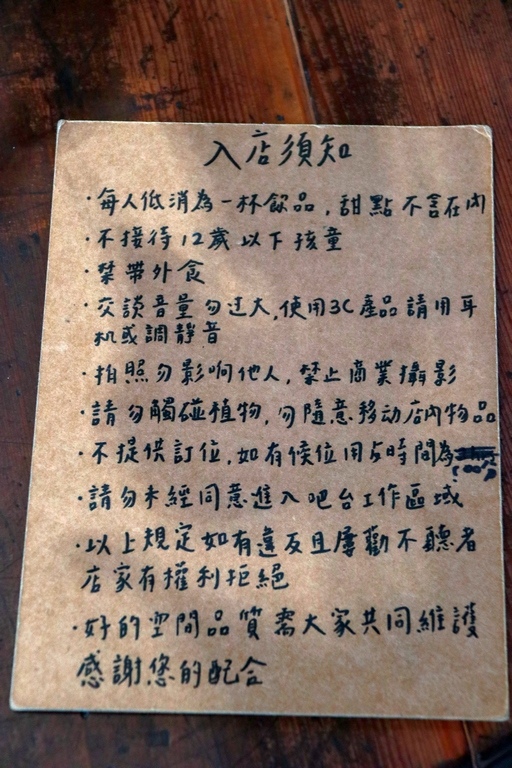 入店須知
·每人低消為一杯飲品,甜點不含在內
·不接待12歲以下孩童
·禁帶外食
·交談音量勿过大,使用3C產品請用耳
机或調靜音
·拍照勿影响他人,禁止商業攝影
·請勿觸碰植物,勿隨意移动店內物品
·不提供訂位,如有候位用歺時間為
·請勿未經同意進入吧台工作區域
·以上規定如有違反且屢勸不聽者
店家有權利拒絕
·好的空間品質需大家共同維護
感謝您的配合